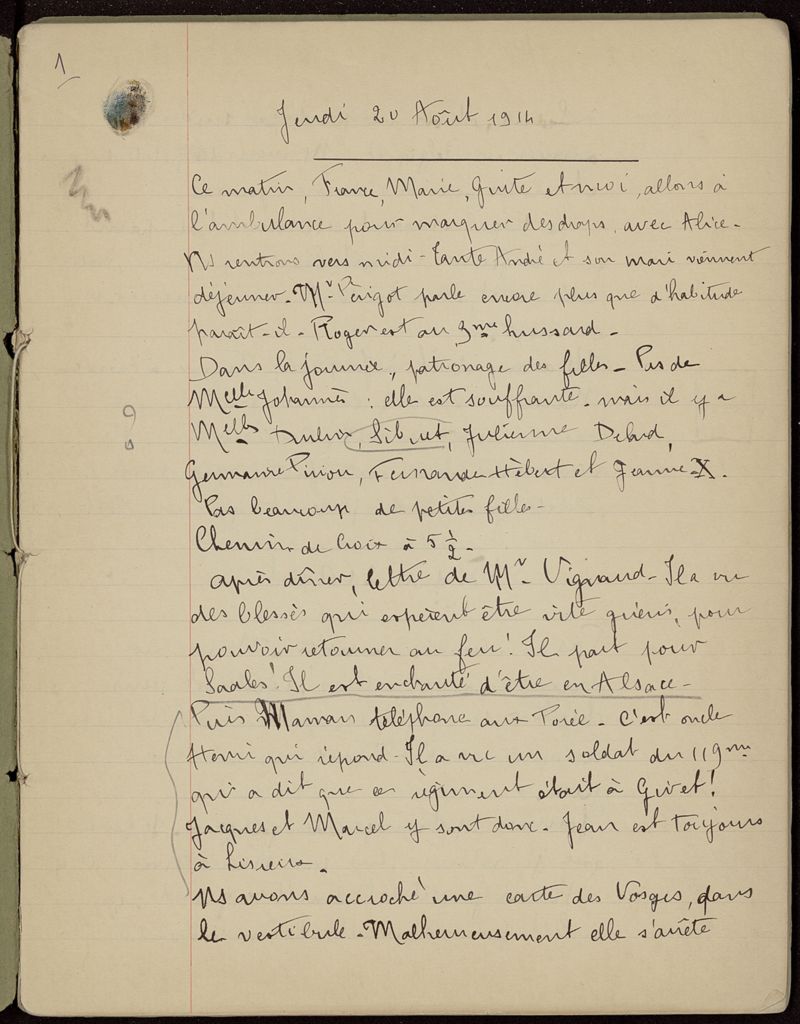 1
Jeudi 20 Août 1914
Ce matin, France, Marie, Guite et moi, allons à
l'ambulance pour marquer des draps, avec Alice -
Ns rentrons vers midi - Tante André et son mari viennent
déjeuner - Mr Périgot parle encore plus que d'habitude
paraît-il - Roger est au 3me hussard -
Dans la journée, patronage des filles - Pas de
Melle Johannès : elle est souffrante - mais il y a
Melles Libert, Julienne
Germaine Piriou, Fernande Hébert et Jeanne X.
Pas beaucoup de petites filles -
Chemin de Croix à 5 1/2 -
après dîner, lettre de Mr Vignaud - Il a vu
des blessés qui espèrent être vite guéris, pour
pouvoir retourner au feu ! Il part pour
Saales ! Il est enchanté d'être en Alsace -
Puis Maman téléphone aux Porée - C'est oncle
Henri qui répond - Il a vu un soldat du 119me
qui a dit que ce régiment était à Givet !
Jacques et Marcel y sont donc - Jean est toujours
à Lisieux.
Ns avons accroché une carte des Vosges, dans
le vestibule - Malheureusement elle s'arrête